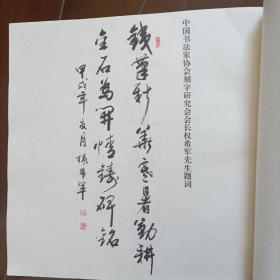 中国书法家协会刻字研究会会长权希军先生题词
铁笔新华寒暑勤耕
金石为开情铸碑铭
甲戌年夏月权希军